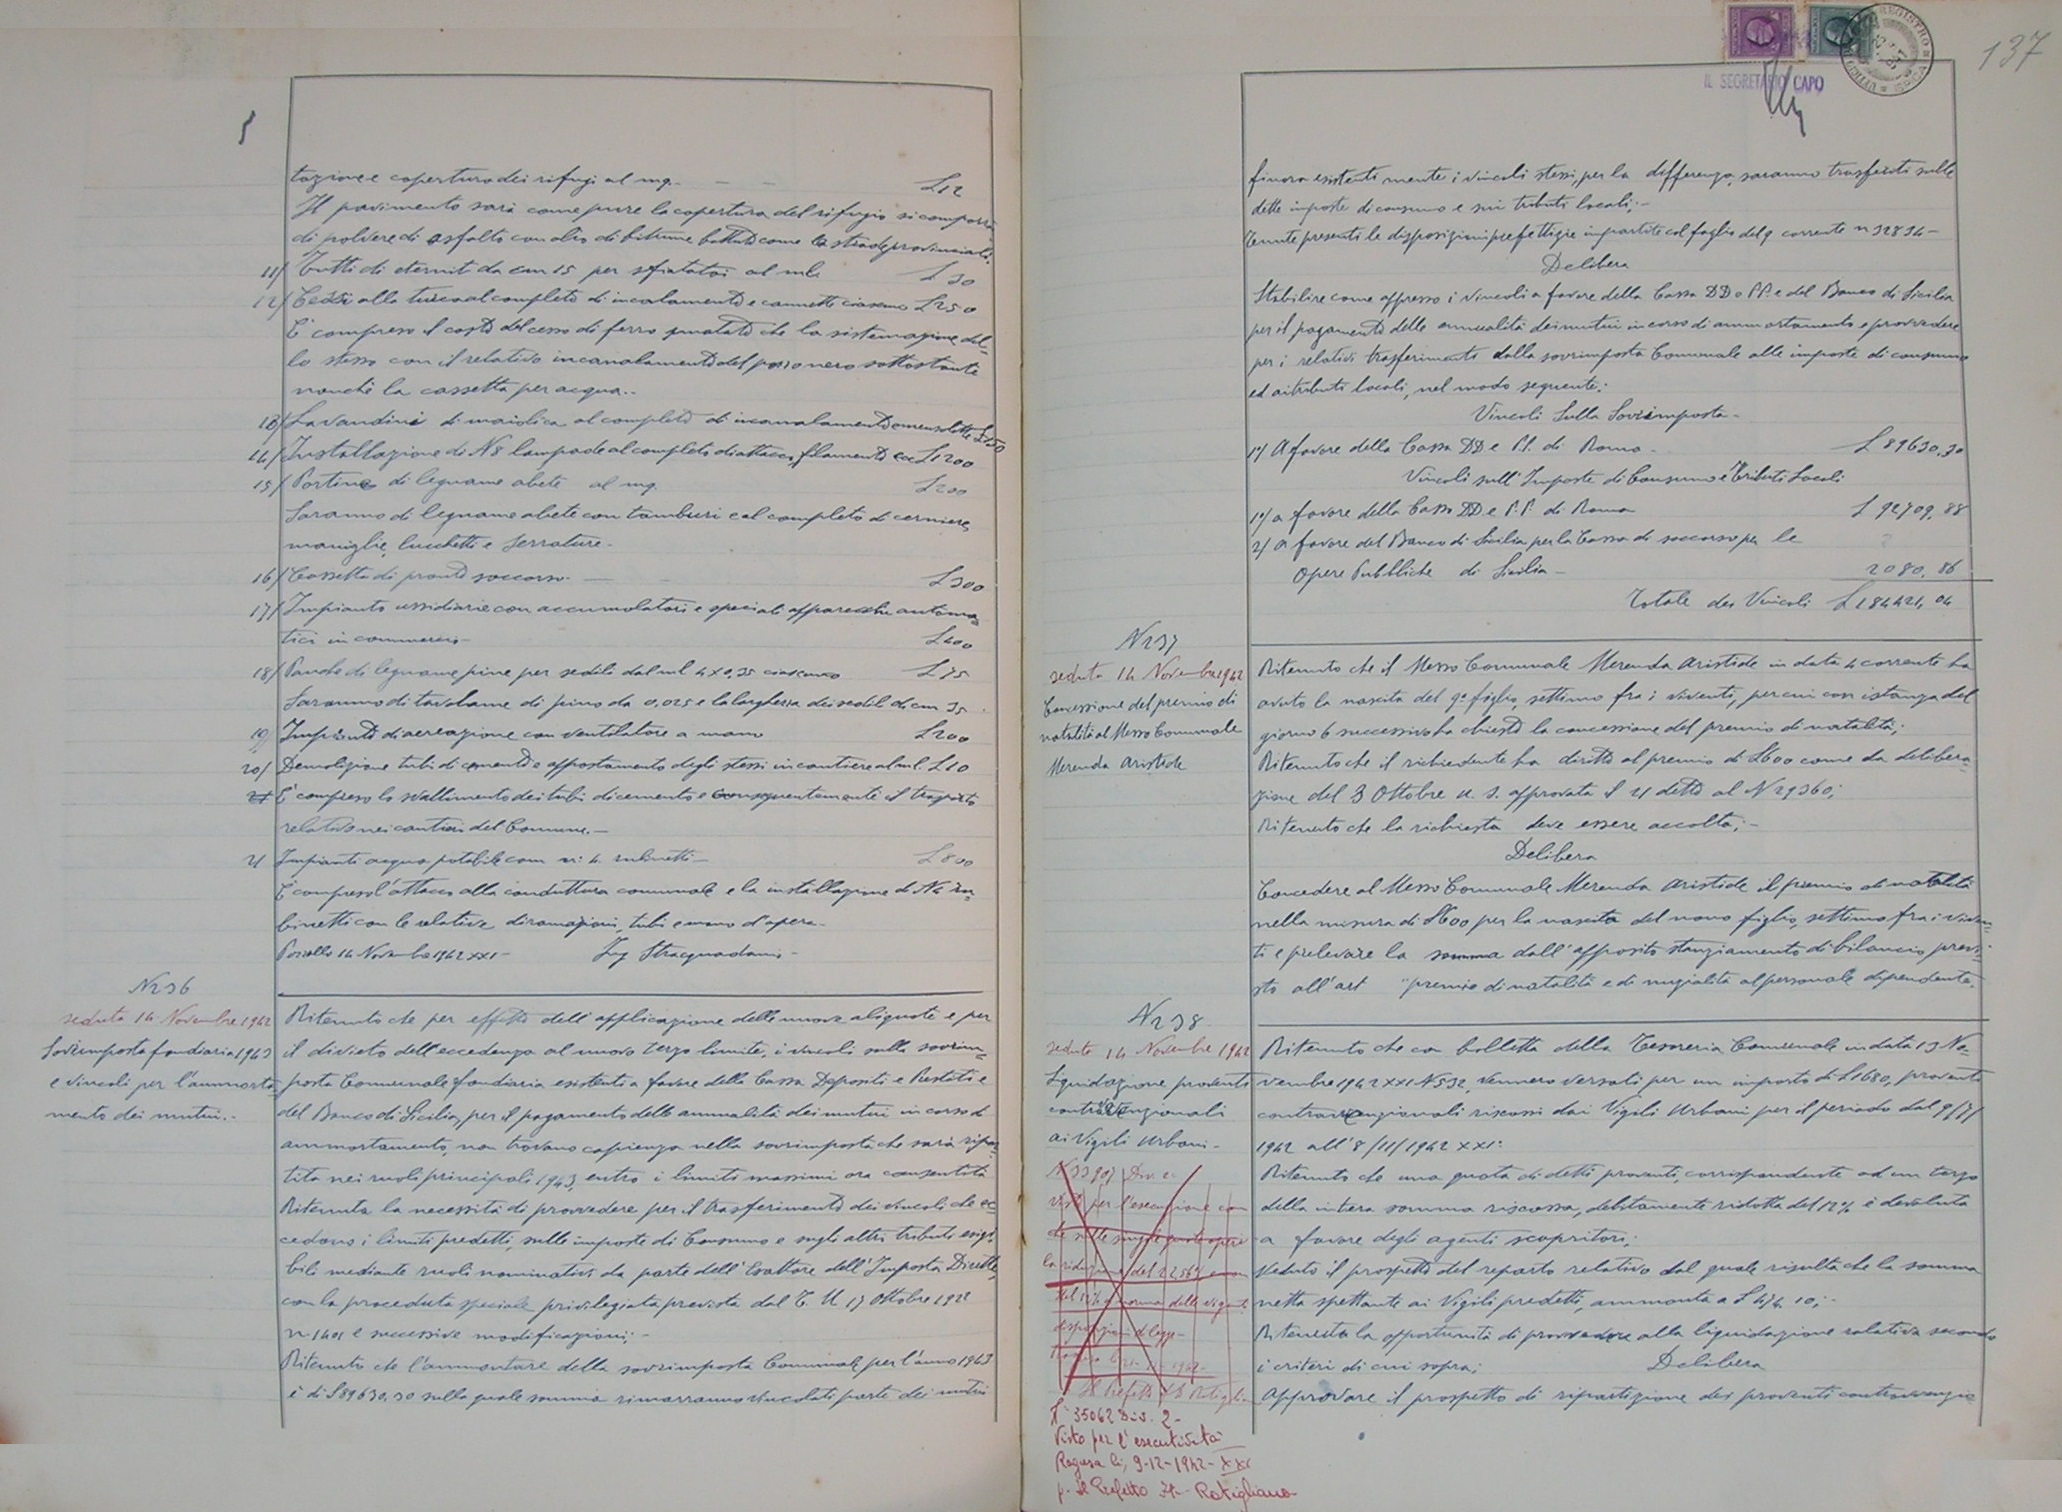 tazione e copertura dei rifugi al mq. — — — £12
Il pavimento sarà come pure la copertura del rifugio si comporrà
di polvere di asfalto con olio di bitume battuto come le strade provinciali.
11/ Tutti di eternit da cm 15 per sfiatatoi al ml. £ 30
12/ Cessi alla turca al completo di incalamento e cannette ciascuno £250
E' compreso il costo del cesso di ferro smaltato che la sistemazione del-
lo stesso con il relativo incanalamento del pozzo nero sottostante
nonchè la cassetta per acqua..
13/ Lavandini di maiolica al completo di incanalamento e mensolette £150
14/ Installazione di N 8 lampade al completo di attacco, filamento ecc £1200
15/ Portine di legname abete al mq. £200
Saranno di legname abete con tamburi e al completo di cerniere,
maniglie, lucchetti e serrature.
16/ Cassetta di pronto soccorso. — £300
17/ Impianto ussidiario con accumulatori e speciali apparecchi automa
tici in commercio — £400
18/ Panche di legname pino per sedili dal ml 4x0,35 ciascuno £75
Saranno di tavolame di pino da 0,025 e la larghezza dei sedili di cm 35
19/ Impianto di aereazione con ventilatore a mano £200
20/ Demolizione tubi di cemento e appostamento degli stessi in cantiere al ml. £10
E' compreso lo svallimento dei tubi di cemento e conseguentemente il trasporto
relativo nei cantieri del Comune. —
21 Impianti acqua potabile com n: 4 rubinetti — £800
E' compreso l'attacco alla conduttura comunale e la installazione di N 4 ru-
binetti con le relative diramazioni, tubi e mano d'opera —
Pozzallo 14 Novembre 1942 XXI — Ing Stracquadanio —
N 236
seduta 14 Novembre 1942
Sovrimposta fondiaria 1943
e vincoli per l'ammorta
mento dei mutui..
Ritenuto che per effetto dell'applicazione delle nuove aliquote e per
il divieto dell'eccedenza al nuovo terzo limite, i vincoli sulla sovrim-
posta Comunale fondiaria esistenti a favore della Cassa Depositi e Prestiti e
del Banco di Sicilia, per il pagamento delle annualità dei mutui in corso di
ammortamento, non trovano capienza nella sovrimposta che sarà ripar
tita nei ruoli principali 1943, entro i limiti massimi ora consentiti
Ritenuta la necessità di provvedere per il trasferimento dei vincoli che ec
cedono i limiti predetti, sulle imposte di Consumo e sugli altri tributi esigi
bili mediante ruoli nominativi da parte dell'Esattore dell'Imposta Dirette
con la procedura speciale privilegiata prevista dal T. U 17 Ottobre 1922
n. 1401 e successive modificazioni; —
Ritenuto che l'ammontare della sovrimposta Comunale per l'anno 1943
è di £ 89630,30 sulla quale somma rimarranno vincolati parte dei mutui
137
IL SEGRETARIO CAPO
UFFICIO REGISTRO
finora esistenti mentre i vincoli stessi, per la differenza, saranno trasferiti sulle
dette imposte di consumo e sui tributi locali; —
Tenute presenti le disposizioni prefettizie impartite col foglio del 9 corrente n 32834 —
Delibera
Stabilire come appresso i vincoli a favore della Cassa DD e PP. e del Banco di Sicilia
per il pagamento delle annualità dei mutui in corso di ammortamento e provvedere
per i relativi trasferimenti dalla sovrimposta Comunale alle imposte di consumo
ed ai tributi locali, nel modo seguente:
Vincoli Sulla Sovrimposta —
1°/ A favore della Cassa DD e P.P. di Roma — £ 89630,30
Vincoli sull'Imposte di Consumo e Tributi Locali
1°/ a favore della Cassa DD e P.P. di Roma £ 92709,88
2/ a favore del Banco di Sicilia per la Cassa di soccorso per le
Opere Pubbliche di Sicilia — 2080,86
Totale dei Vincoli £ 184421,04
N 237
seduta 14 Novembre 1942
Concessione del premio di
natalità al Messo Comunale
Merenda Aristide
Ritenuto che il Messo Comunale Merenda Aristide in data 4 corrente ha
avuto la nascita del 9° figlio, settimo fra i viventi, per cui con istanza del
giorno 6 successivo ha chiesto la concessione del premio di natalità;
Ritenuto che il richiedente ha diritto al premio di £600 come da delibera-
zione del 3 Ottobre u. s. approvata il 21 detto al N 29360;
Ritenuto che la richiesta deve essere accolta; —
Delibera
Concedere al Messo Comunale Merenda Aristide il premio di natalità
nella misura di £600 per la nascita del nono figlio, settimo fra i viven-
ti e prelevare la somma dall'apposito stanziamento di bilancio previ-
sto all'art "premio di natalità e di nuzialità al personale dipendente.
N 238
seduta 14 Novembre 1942
Liquidazione proventi
contravvenzionali
ai Vigili Urbani —
Ritenuto che con bolletta della Tesoreria Comunale in data 13 No-
vembre 1942 XXI N 532, vennero versati per un importo di £1680, proventi
contravvenzionali riscossi dai Vigili Urbani per il periodo dal 9/7/
1942 all'8/11/1942 XXI:
Ritenuto che una quota di detti proventi, corrispondente ad un terzo
della intera somma riscossa, debitamente ridotta del 12% è devoluta
a favore degli agenti scopritori;
Veduto il prospetto del reparto relativo dal quale risulta che la somma
netta spettante ai Vigili predetti, ammonta a £ 474.10; —
Ritenuta la opportunità di provvedere alla liquidazione relativa secondo
i criteri di cui sopra; Delibera
Approvare il prospetto di ripartizione dei proventi contravvenzio
Visto per l'esecuzione con
del 12% a norma delle vigenti
disposizioni di legge —
Il Prefetto
N° 35062 Div. 2 —
Visto per l'esecutività
Ragusa li, 9-12-1942 — XXI
p. Il Prefetto Ft — Ratigliano